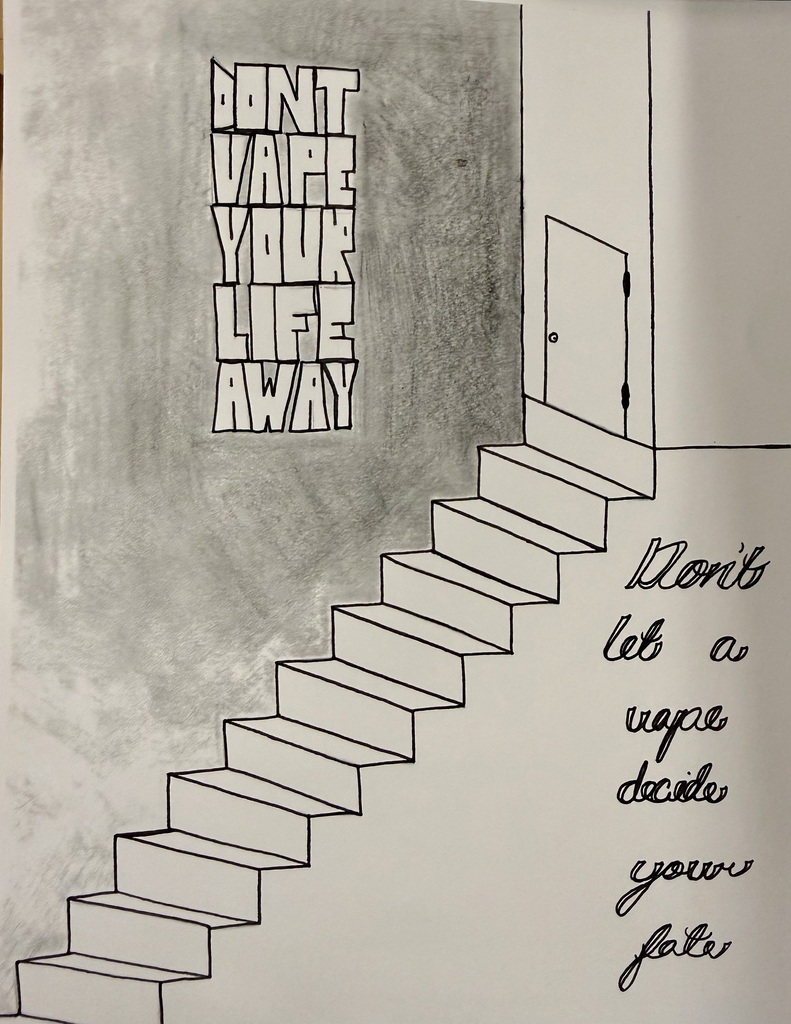 DONT
VAPE
YOUR
LIFE
AWAY
Don't
let a
vape
decide
your
fate